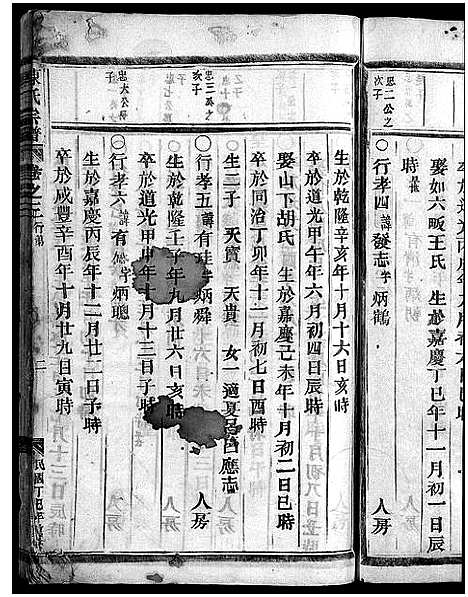 娶如六畈王氏 生於嘉慶丁巳年十一月初一日辰
時
忠二公之次子
行孝四 諱發志 字炳鶴 人房
生於乾隆辛亥年十月十六日亥時
卒於道光甲午年六月初四日辰時
娶山下胡氏 生於嘉慶己未年十月初二日巳時
卒於同治丁卯年十二月初七日酉時
生二子 天寶 天貴 女一適夏呂應志
忠三公之次子
行孝五 諱有 字炳舜 人房
生於乾隆壬子年九月廿六日亥時
卒於道光甲申年十月十三日子時
忠太公
行孝六 諱有然 字炳聰 人房
生於嘉慶丙辰年十二月廿二日子時
卒於咸豐辛酉年十月廿九日寅時
陳氏宗譜 卷之三 行第 二 民國丁巳年